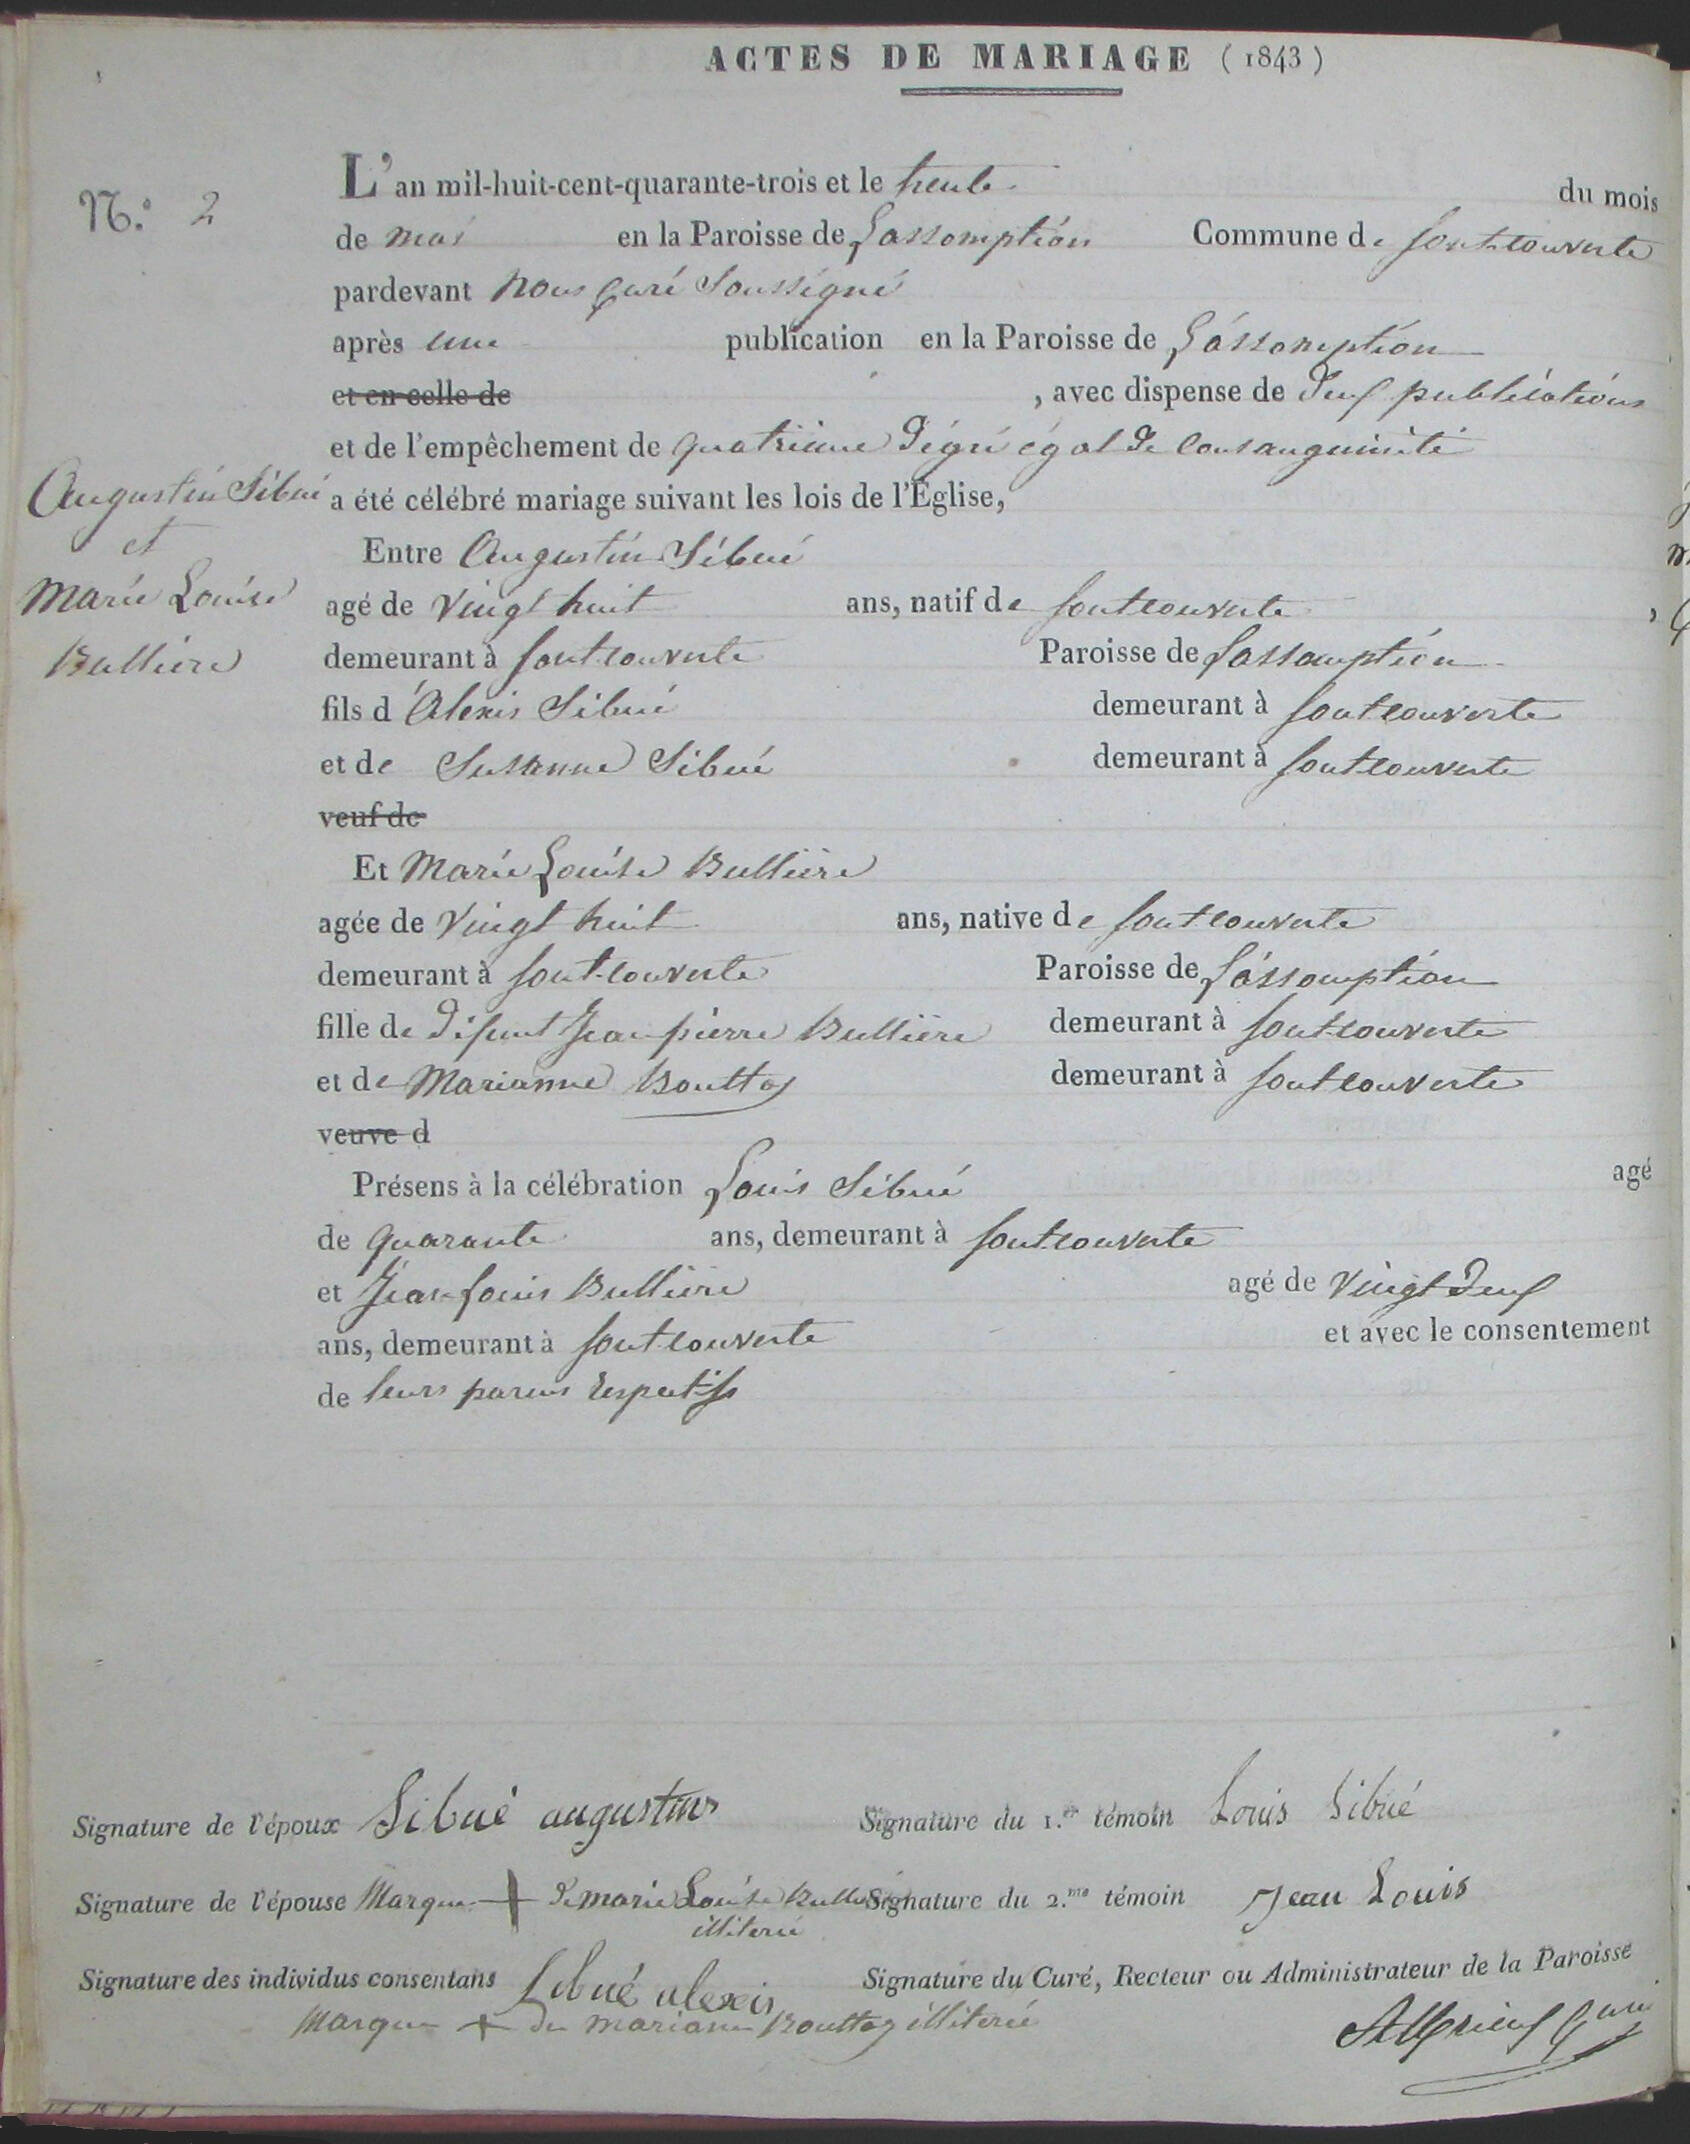 ACTES DE MARIAGE (1843)
N.° 2
L'an mil-huit-cent-quarante-trois et le trente du mois
de mai en la Paroisse de Lassomption Commune de fontcouverte
pardevant nous Curé soussigné
après une publication en la Paroisse de L'assomption
et en celle de , avec dispense de deux publications
et de l'empêchement de quatrieme dégré égal de consanguinité
a été célébré mariage suivant les lois de l'Église,
Augustin Sibué
et
Marie Louise
Bulliere
Entre Augustin Sibué
agé de vingt huit ans, natif de fontcouverte
demeurant à fontcouverte Paroisse de Lassomption
fils d'Alexis Sibué demeurant à fontcouverte
et de Susanne Sibué demeurant à fontcouverte
veuf de
Et Marie Louise Bulliere
agée de vingt huit ans, native de fontcouverte
demeurant à fontcouverte Paroisse de L'assomption
fille de défunt Jean pierre Bulliere demeurant à fontcouverte
et de Marianne Bouttaz demeurant à fontcouverte
veuve d
Présens à la célébration Louis Sibué agé
de quarante ans, demeurant à fontcouverte
et Jean Louis Bulliere agé de vingt deux
ans, demeurant à fontcouverte et avec le consentement
de leurs parens respectifs
Signature de l'époux Sibué augustin Signature du 1.er témoin Louis Sibué
Signature de l'épouse Marque + de marie Louise Signature du 2.me témoin Jean Louis
illiterée
Signature des individus consentans Sibué alexis Signature du Curé, Recteur ou Administrateur de la Paroisse
Marque + de mariane Bouttaz illiterée
Curé